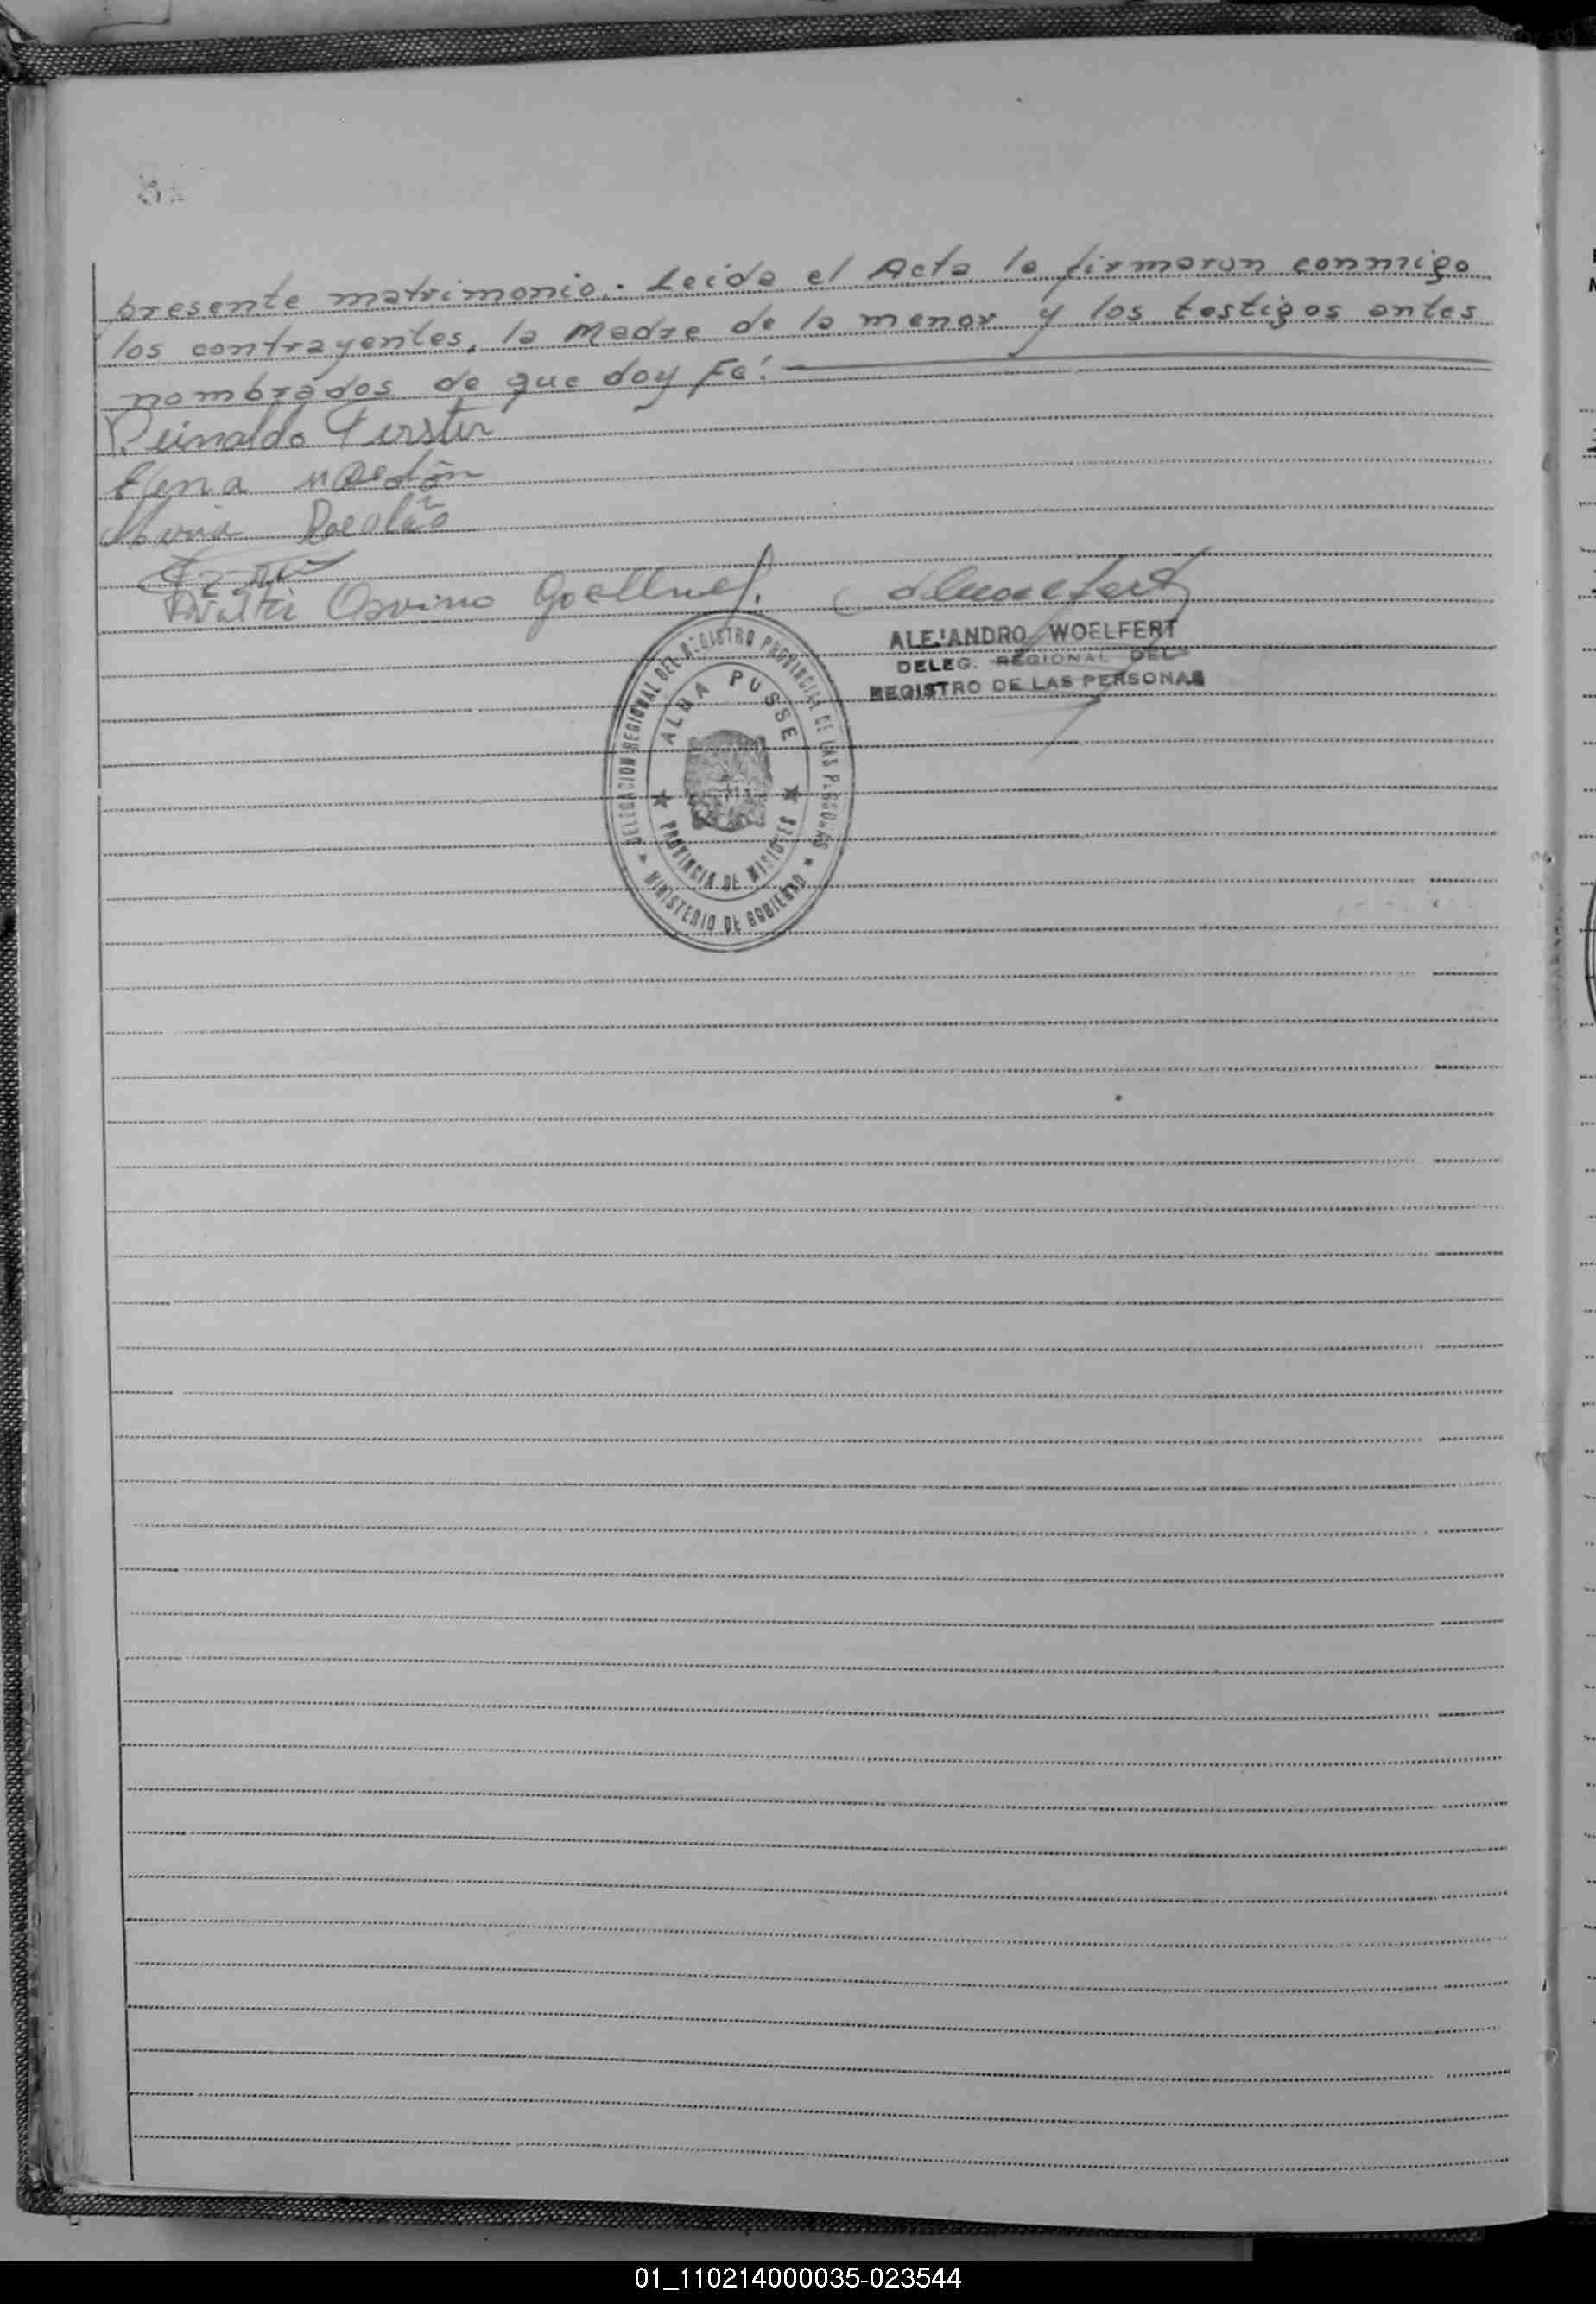 presente matrimonio.- Leida el Acta la firmaron conmigo
los contrayentes, la Madre de la menor y los testigos antes
nombrados de que doy Fé:
Reinaldo Ferster
Elena
Maria
Walter Osvino Goellner.
ALEJANDRO WOELFERT
DELEG. REGIONAL DEL
REGISTRO DE LAS PERSONAS
DELEGACION REGIONAL DEL REGISTRO PROVINCIAL DE LAS PERSONAS
ALBA PUSSE
PROVINCIA DE MISIONES
MINISTERIO DE GOBIERNO
01_110214000035-023544